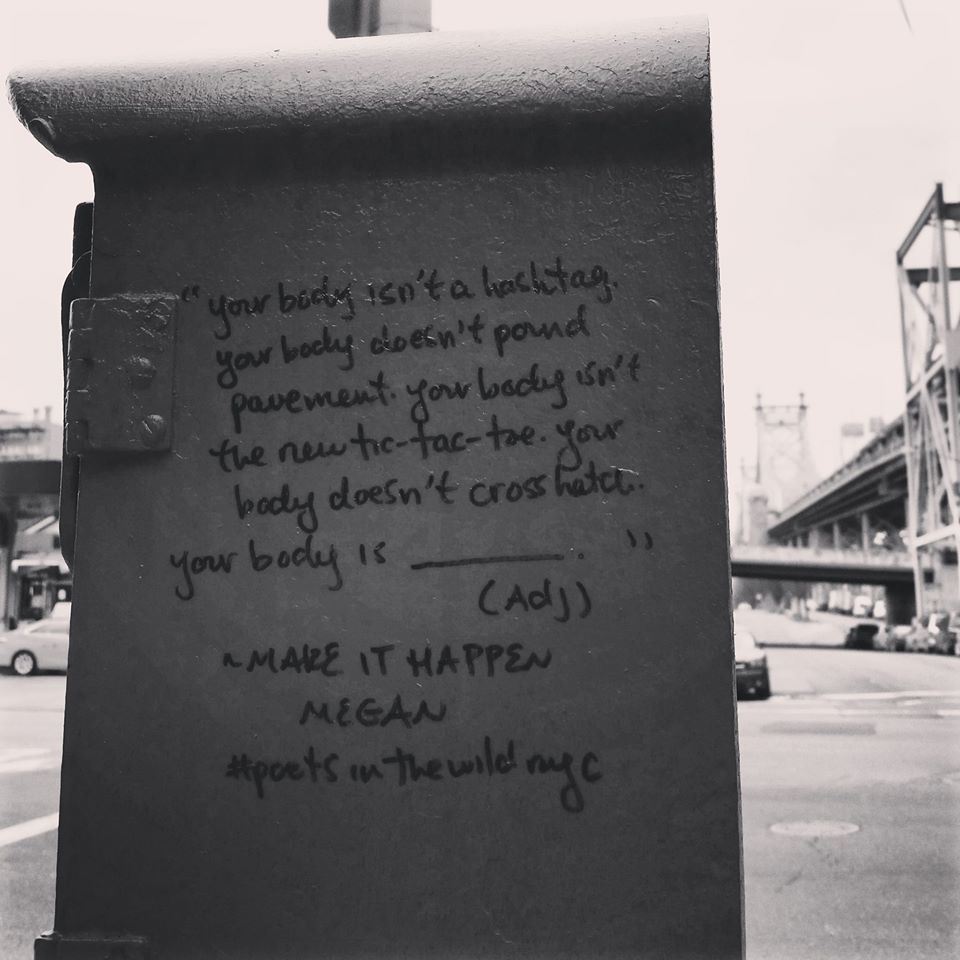 "your body isn't a hashtag.
your body doesn't pound
pavement. your body isn't
the new tic-tac-toe. your
body doesn't crosshatch.
your body is ________. "
(Adj)
~MAKE IT HAPPEN
MEGAN
#poetsinthewildnyc